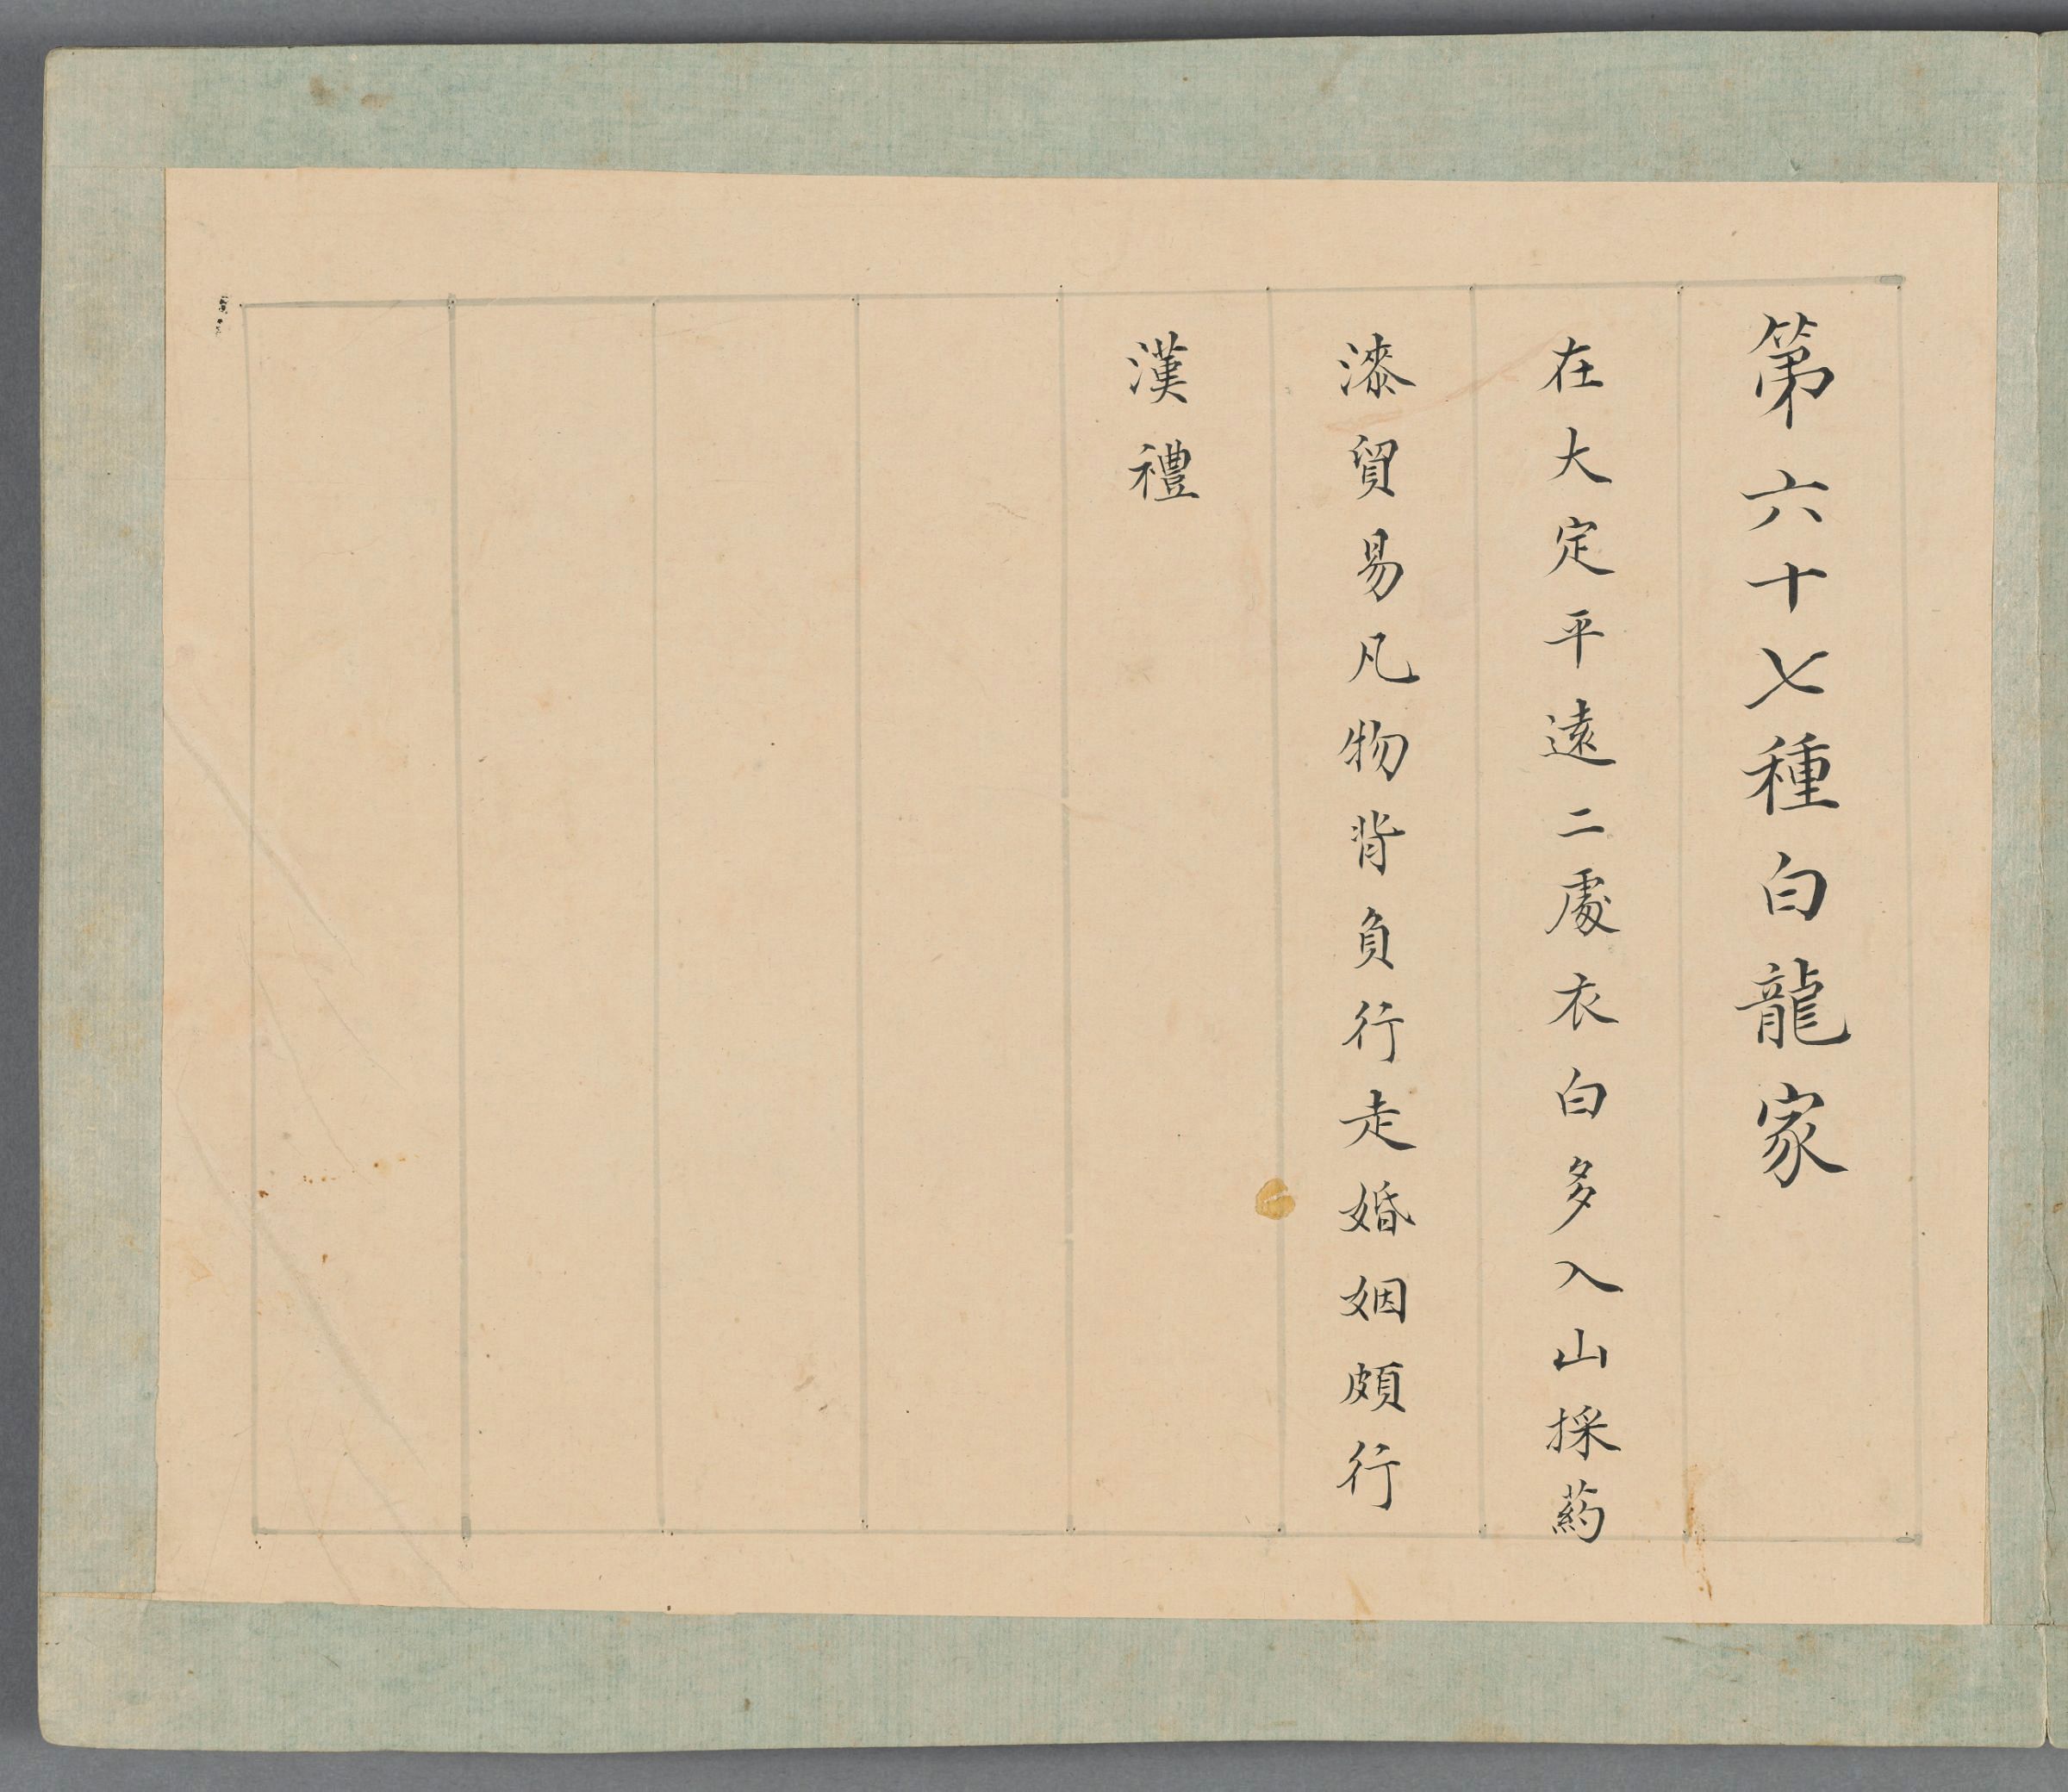 第六十七種白龍家
在大定平遠二處衣白多入山採葯
漆貿易凡物背負行走婚姻頗行
漢禮